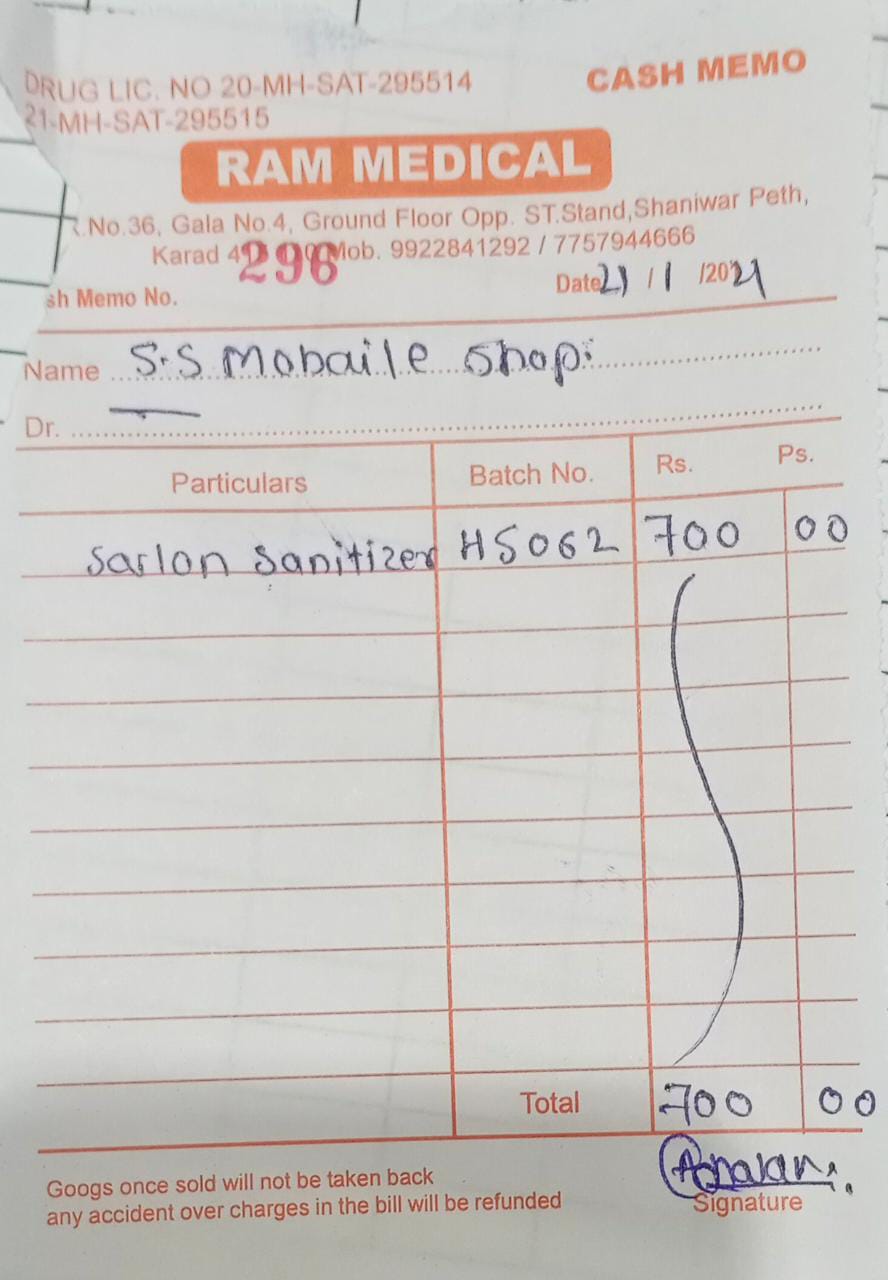 DRUG LIC. NO 20-MH-SAT-295514
CASH MEMO
21-MH-SAT-295515
RAM MEDICAL
.No.36, Gala No.4, Ground Floor Opp. ST.Stand,Shaniwar Peth,
Karad 4 Mob. 9922841292 / 7757944666
296
sh Memo No.
Date 21 / 1 /2021
Name S.S Mobaile Shop.
Dr. —
Particulars Batch No. Rs. Ps.
Sarlon Sanitizer HS062 700 00
Total 700 00
Googs once sold will not be taken back
any accident over charges in the bill will be refunded
Signature